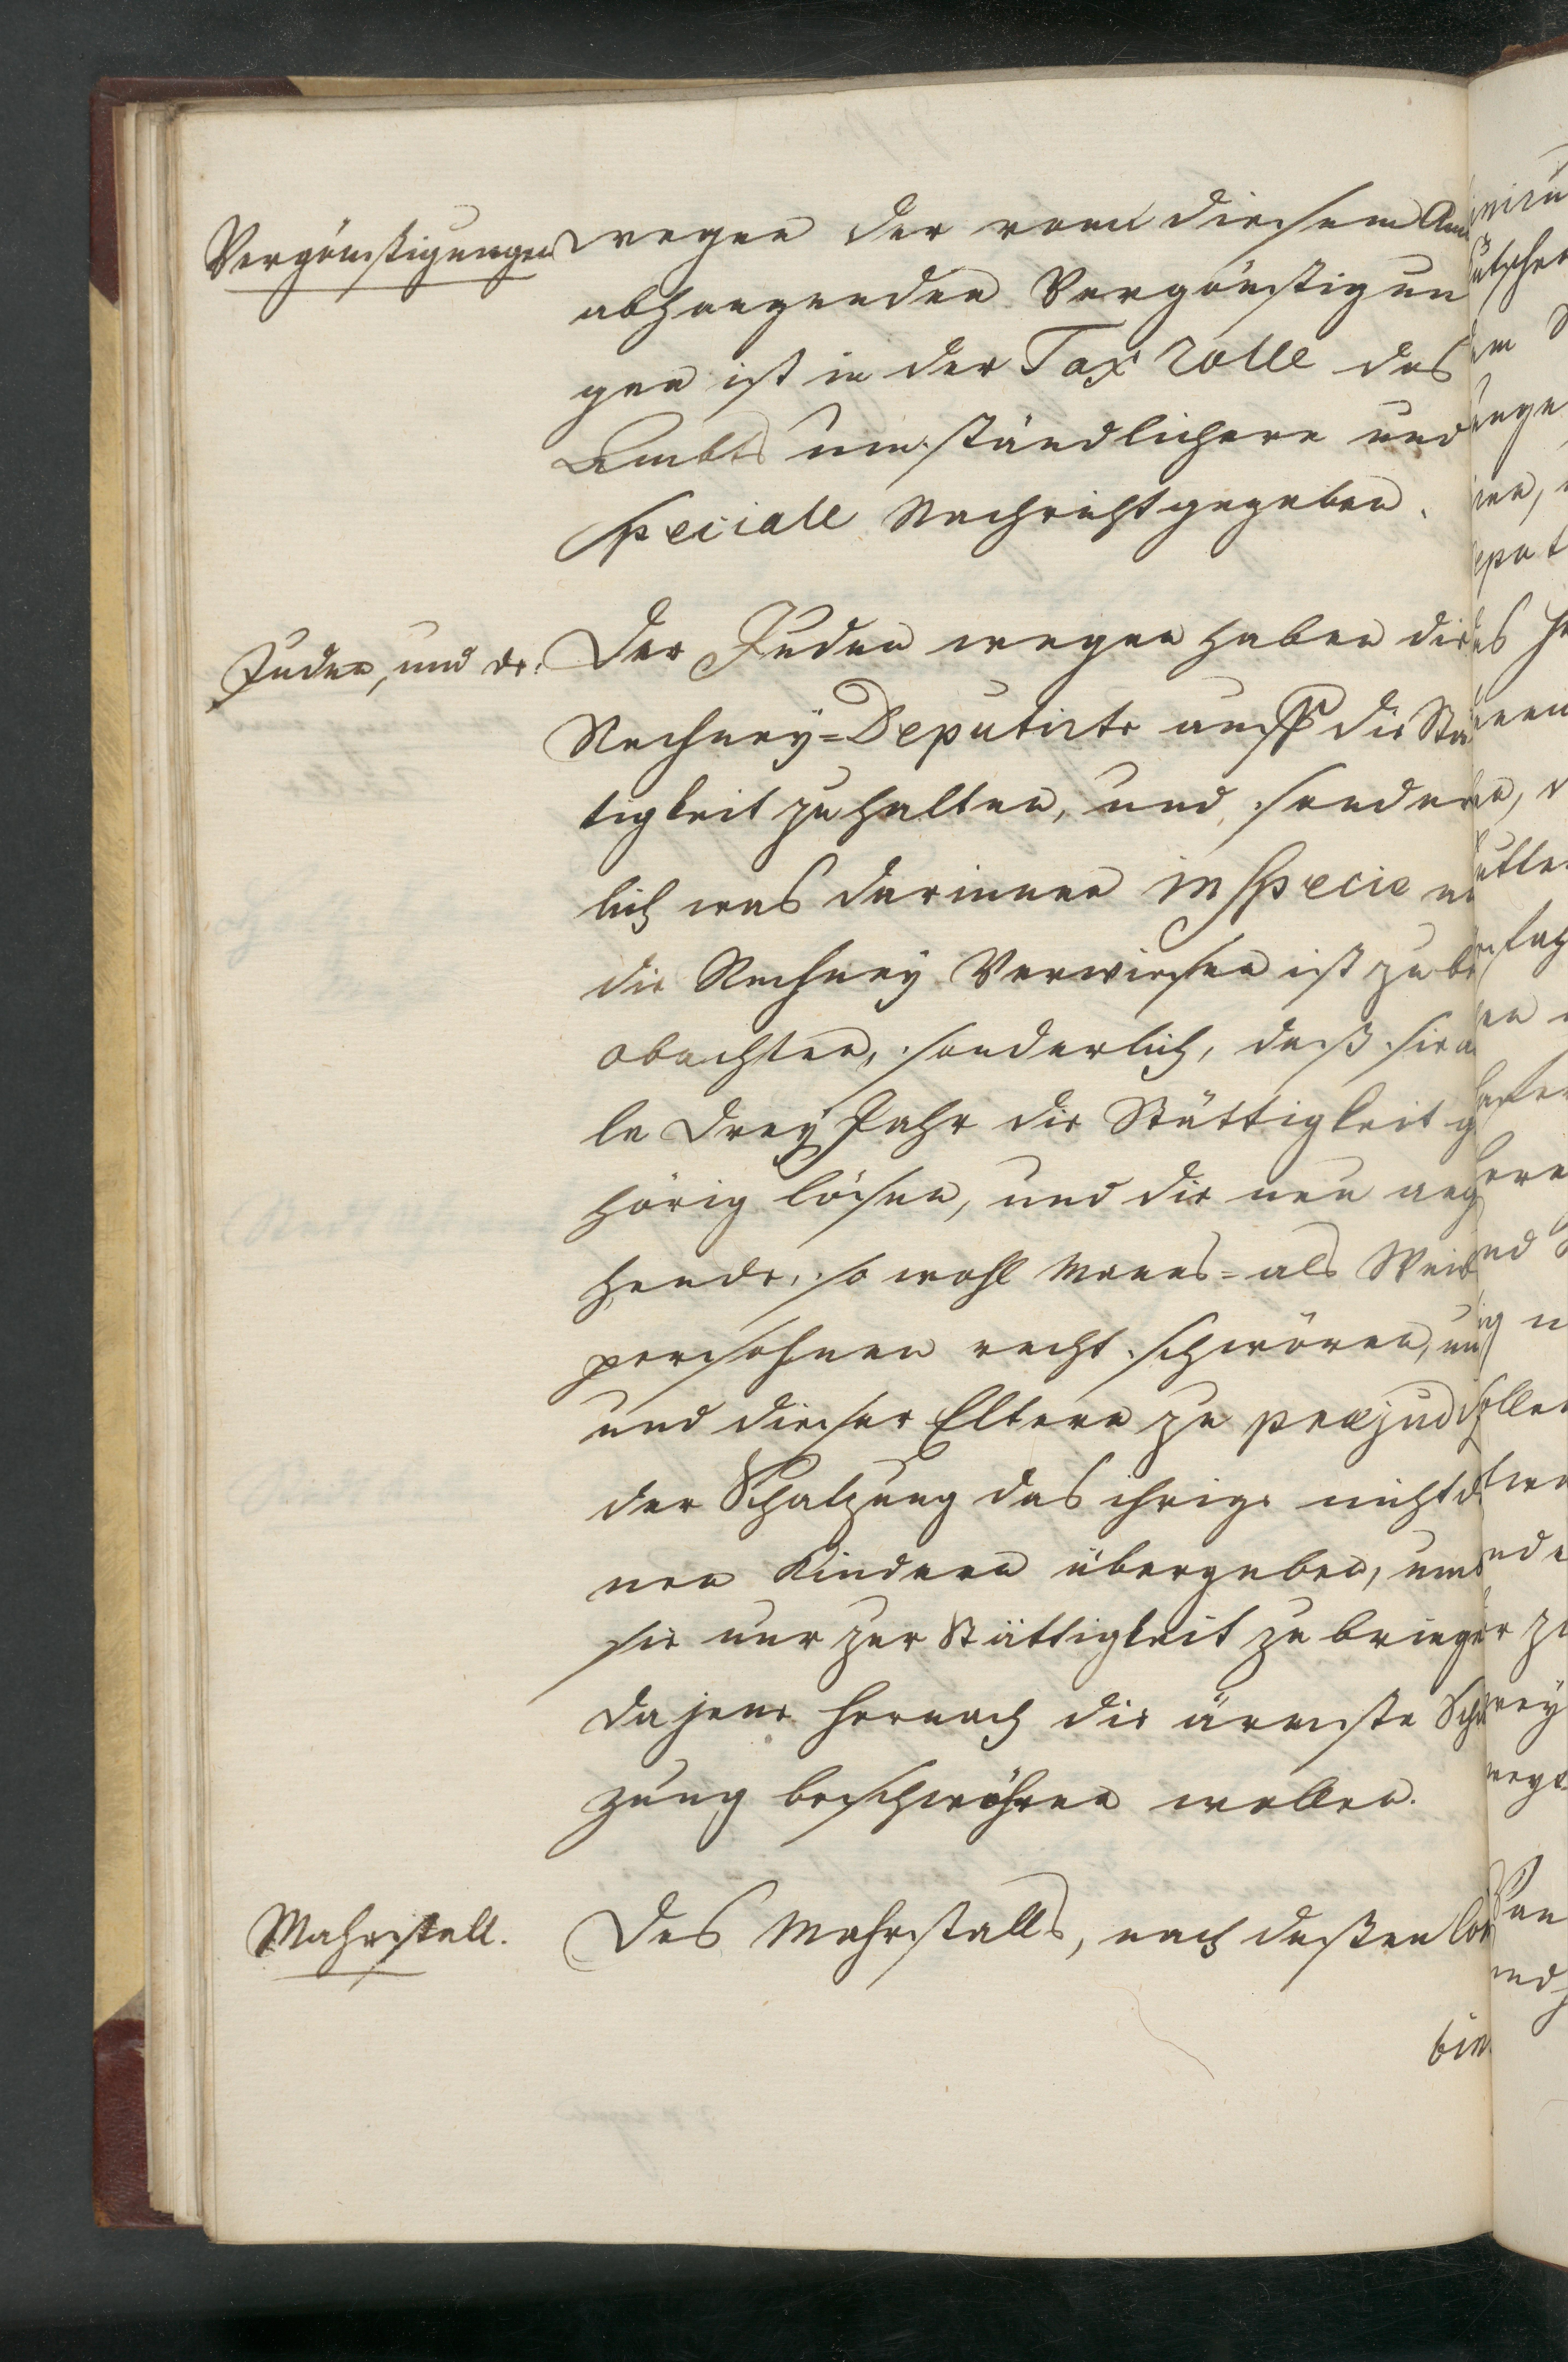 Vergönstigungen
wegen der von diesem Am
abhangenden Vergönstigun
gen ist in der Tax rolle des
Ambts umständlichere und
speciale Nachricht gegeben.
Juden, und de:
Der Juden wegen haben die
Rechney=Deputirte auff die Stä
tigkeit zu halten, und sonder
lich was darinnen in specie
die Rechney Verwiesen ist zu be
obachten, sonderlich, daß sie a
le drey Jahr die Stättigkeit g
hörig lösen, und die neu ang
hende, so wohl Manns= als Weib
persohnen recht schwören, un
und dieser Eltern zu præjud
der Schatzung das ihrige nicht d
nen Kindern übergeben, umb
sie nur zur Stättigkeit zu bringe
da jene hernach die ärmste Scha
zung beschwöhren wollen.
Mahrstall.
Des Mahrstalls, nach deßen
bin